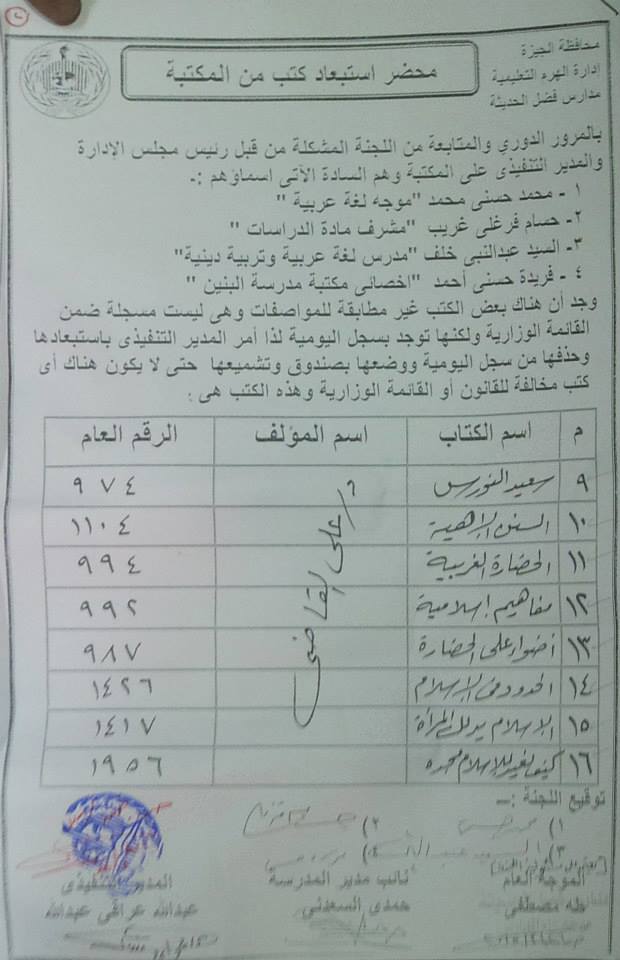 ٢
محافظة الجيزة
إدارة الهرم التعليمية
مدارس فضل الحديثة
محضر استبعاد كتب من المكتبة
بالمرور الدوري والمتابعة من اللجنة المشكلة من قبل رئيس مجلس الإدارة
والمدير التنفيذى على المكتبة وهم السادة الأتى اسماؤهم :-
١ - محمد حسنى محمد "موجه لغة عربية "
٢- حسام فرغلى غريب "مشرف مادة الدراسات "
٣- السيد عبدالنبى خلف "مدرس لغة عربية وتربية دينية"
٤ - فريدة حسنى أحمد "اخصائى مكتبة مدرسة البنين "
وجد أن هناك بعض الكتب غير مطابقة للمواصفات وهى ليست مسجلة ضمن
القائمة الوزارية ولكنها توجد بسجل اليومية لذا أمر المدير التنفيذى باستبعادها
وحذفها من سجل اليومية ووضعها بصندوق وتشميعها حتى لا يكون هناك أى
كتب مخالفة للقانون أو القائمة الوزارية وهذه الكتب هى :
م اسم الكتاب اسم المؤلف الرقم العام
٩ سعيد النورس ٩٧٤
١٠ السنن الإلاهية ١١٠٤
١١ الحضارة الغربية ٩٩٤
١٢ مفاهيم إسلامية ٩٩٢
١٣ أضواء على الحضارة ٩٨٧
١٤ الحدود فى الإسلام ١٤٢٦
١٥ الإسلام المرأة ١٤١٧
١٦ كيف للإسلام مجده ١٩٥٦
د/ على القاضى
توقيع اللجنة :-
١) ٢)
٣) السيد عبد النبى ٤)
الموجة العام نائب مدير المدرسة المدير التنفيذى
طه مصطفى حمدى السعدنى عبدالله عراقى عبدالله